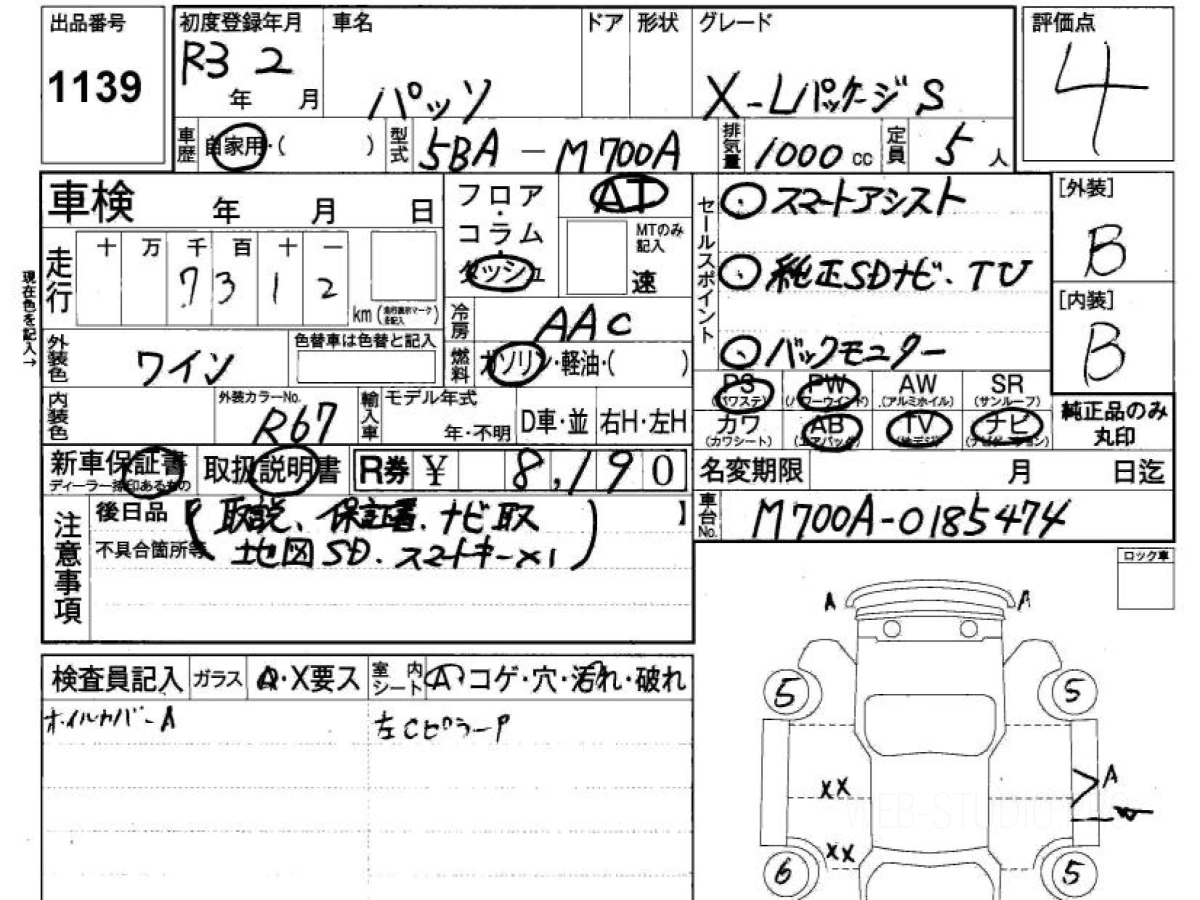 出品番号
1139
初度登録年月
R3 2
年 月
車名
パッソ
ドア 形状 グレード
X-Lパッケージ S
評価点
4
車歴 自家用・( )
型式 5BA-M700A
排気量 1000 cc
定員 5 人
車検 年 月 日
現在色を記入→
走行 十 万 千 百 十 一
7 3 1 2
km (走行表示マークを記入)
フロア・コラム・ダッシュ
AT
MTのみ記入
速
セールスポイント
⊙スマートアシスト
⊙純正SDナビ、TV
⊙バックモニター
[外装]
B
[内装]
B
冷房 AAC
燃料 ガソリン・軽油・( )
外装色 ワイン
色替車は色替と記入
内装色
外装カラーNo.
R67
輸入車
モデル年式
年・不明
D車・並
右H・左H
PS (パワステ)
PW (パワーウインド)
AW (アルミホイル)
SR (サンルーフ)
カワ (カワシート)
AB (エアバック)
TV (地デジ)
ナビ (ナビゲーション)
純正品のみ
丸印
新車保証書
ディーラー捺印あるもの
取扱説明書
R券 ¥ 8,190
名変期限 月 日迄
車台No. M700A-0185474
注意事項
後日品【取説、保証書、ナビ取】
不具合箇所等
地図SD、スマートキー×1)
ロック車
検査員記入
ガラス A・X要ス
室内シート A コゲ・穴・汚れ・破れ
オイルカバーA
左CピラーP
A A
5 5
A
XX
XX
6 5
WEB-STUDIO